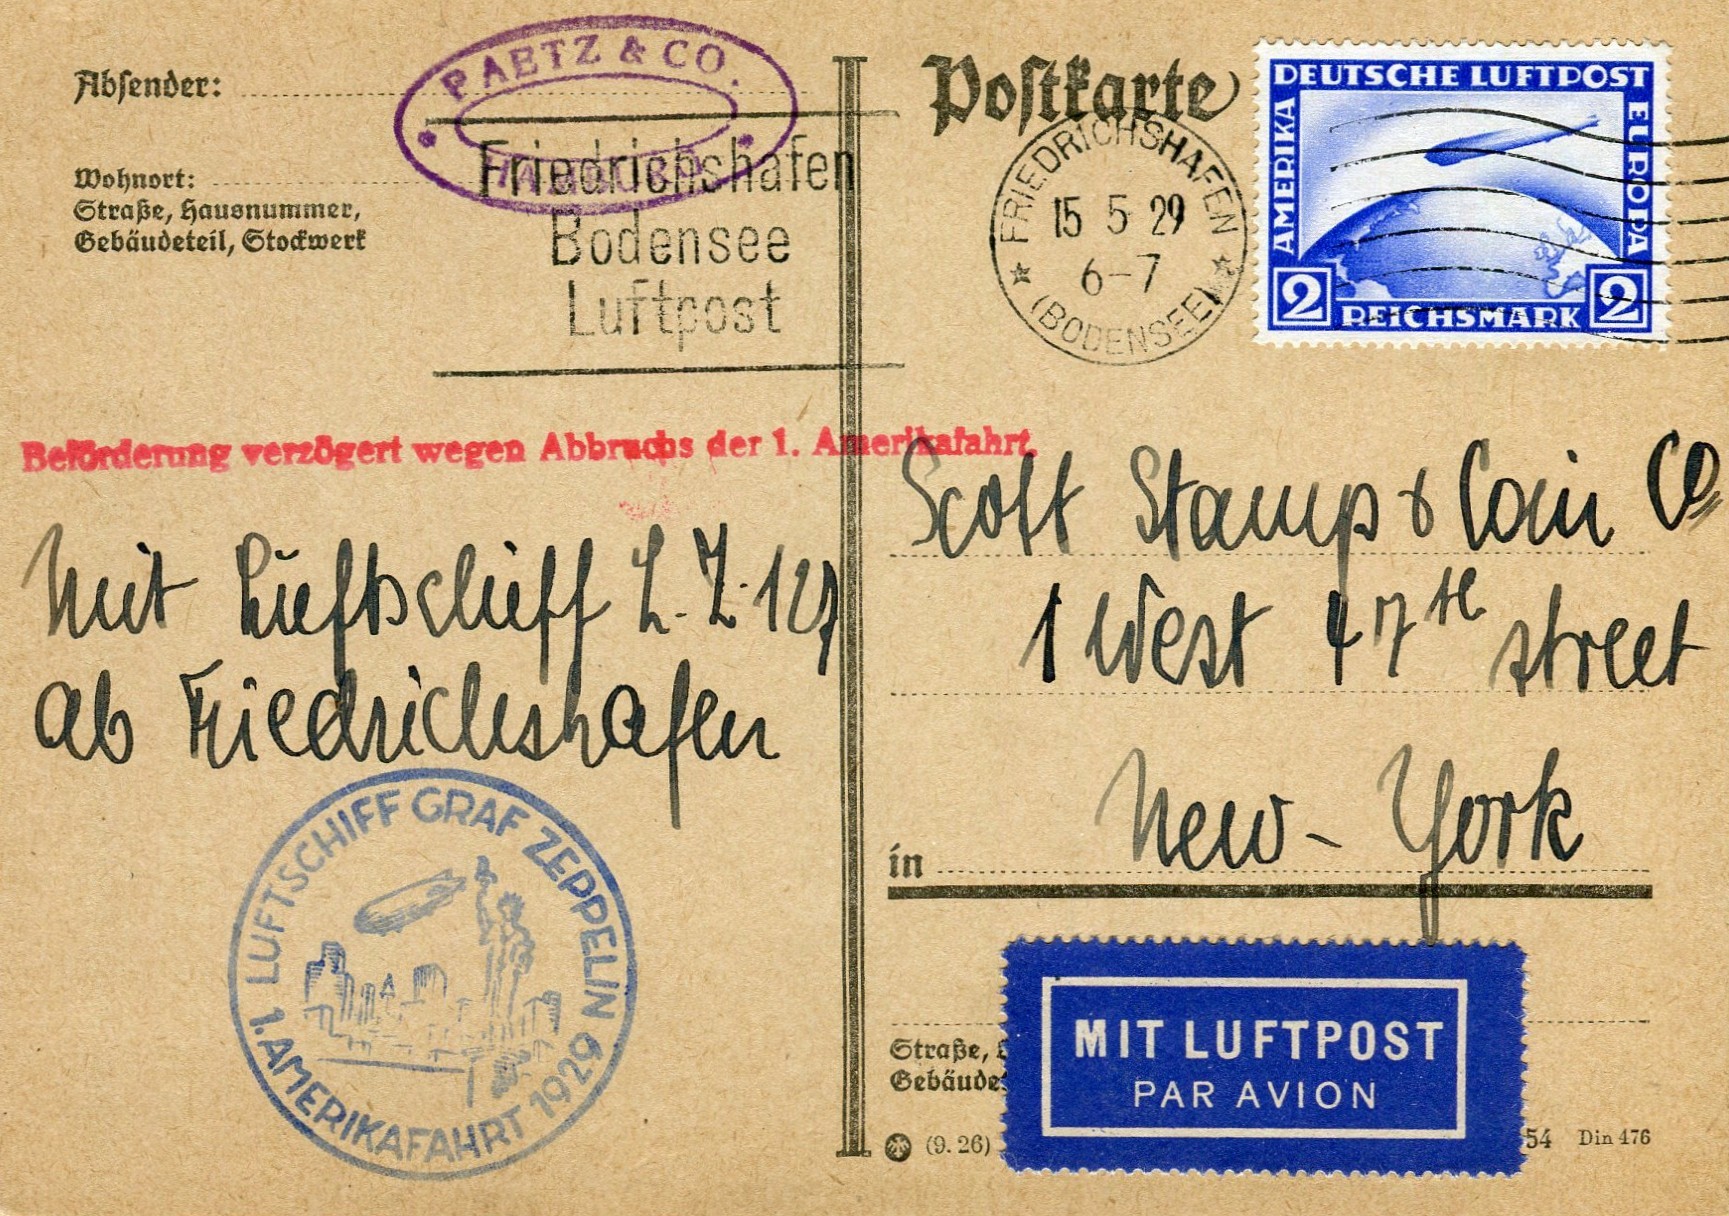 Absender:
PAETZ & CO.
Wohnort:
Straße, Hausnummer,
Gebäudeteil, Stockwerk
Friedrichshafen
Bodensee
Luftpost
Postkarte
FRIEDRICHSHAFEN
15 5 29
6-7
(BODENSEE)
DEUTSCHE LUFTPOST
AMERIKA
EUROPA
2 REICHSMARK 2
Beförderung verzögert wegen Abbruchs der 1. Amerikafahrt.
Mit Luftschiff L.Z.127
ab Friedrichshafen
Scott Stamp & Coin Co
1 West 47th street
New-York
in
LUFTSCHIFF GRAF ZEPPELIN
1. AMERIKAFAHRT 1929
MIT LUFTPOST
PAR AVION
Straße,
Gebäude
(9. 26)
54 Din 476